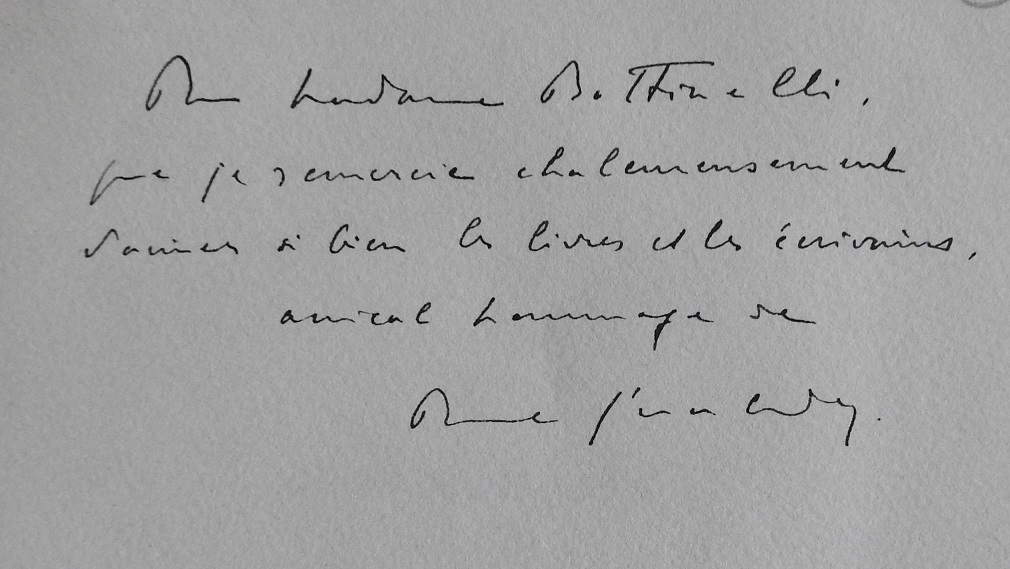 Pour Madame Battinelli,
que je remercie chaleureusement
d'aimer si bien les livres et les écrivains,
amical hommage de